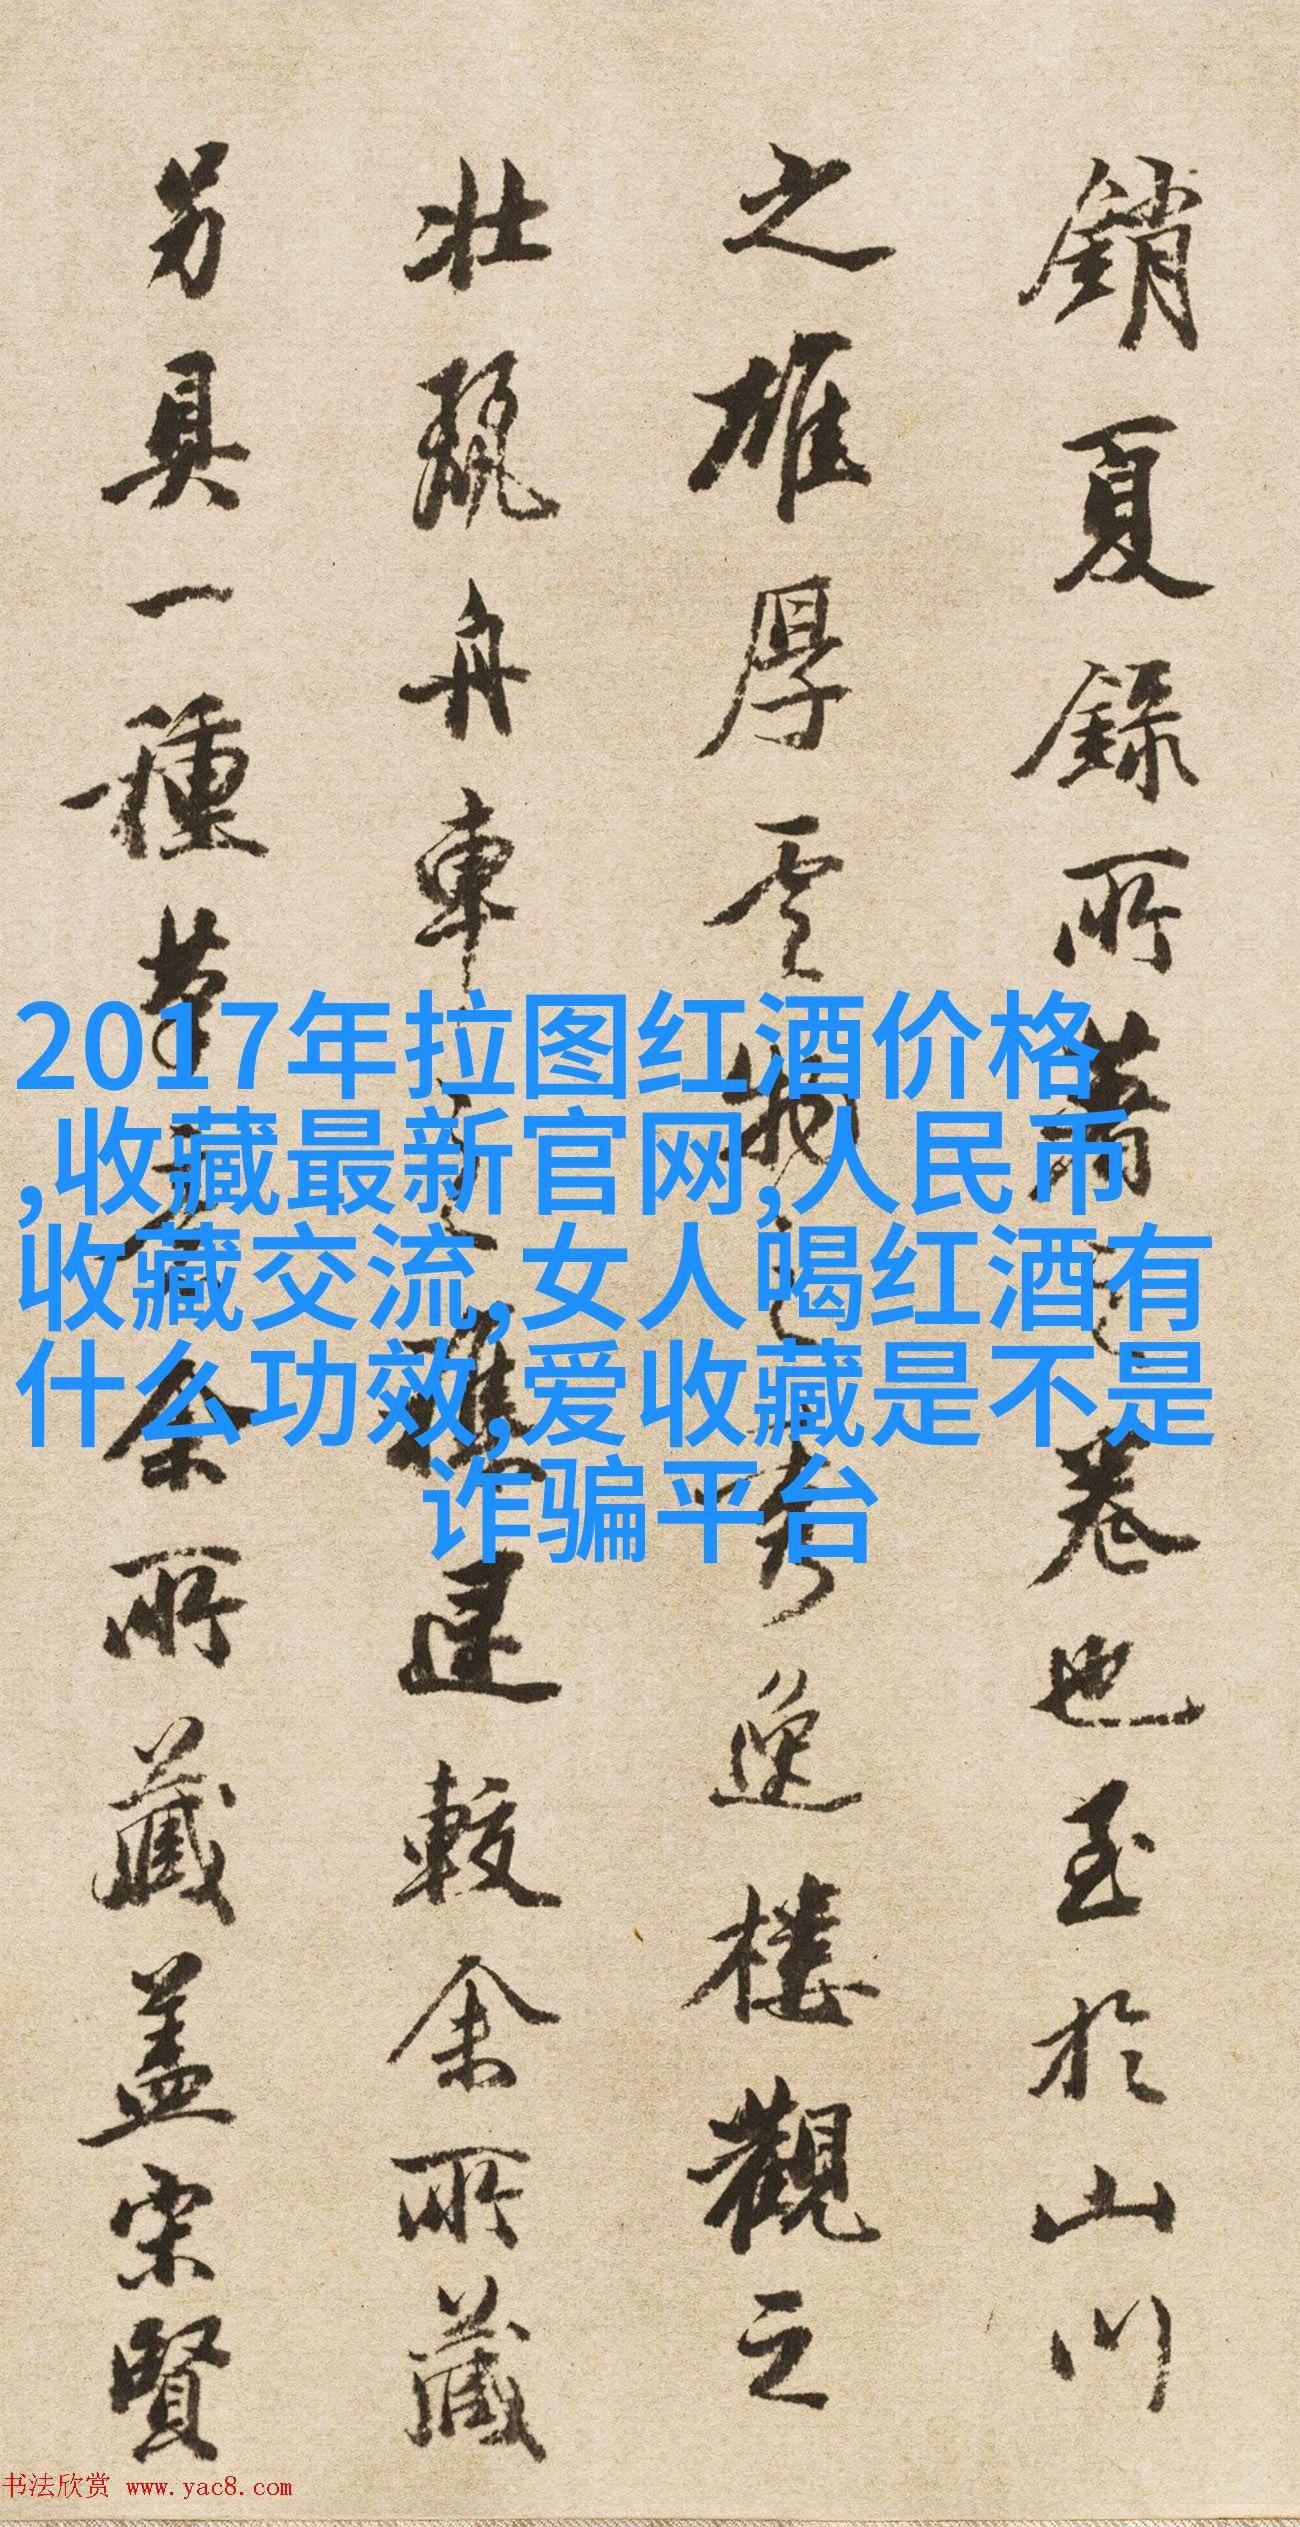 銷夏錄所著之卷也至於山川
之雄厚雲物之秀逸樓觀之
壯麗舟車之雄建較余所藏
另具一種筆意余所藏蓋宋賢
2017年拉图红酒价格
,收藏最新官网,人民币
收藏交流,女人喝红酒有
什么功效,爱收藏是不是
诈骗平台
书法欣赏 www.yac8.com